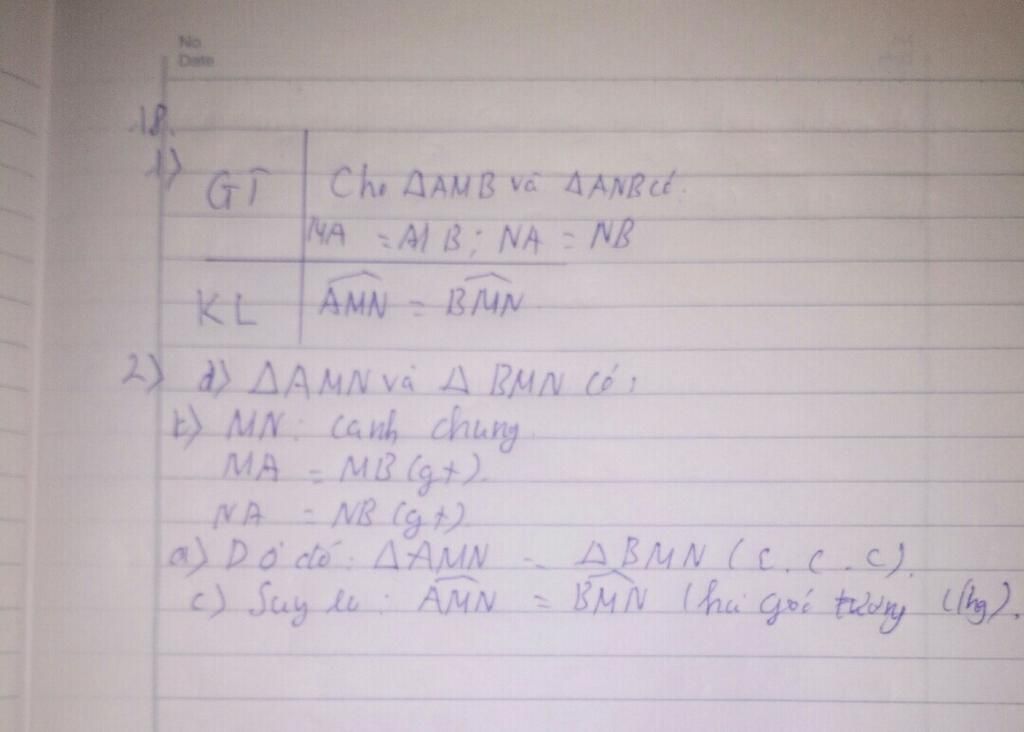 No
Date
18.
1) GT Cho ΔAMB và ΔANB có.
MA = MB; NA = NB
KL AMN = BMN
2) d) ΔAMN và Δ BMN có:
b) MN: cạnh chung.
MA = MB (gt).
NA = NB (gt)
a) Do đó: ΔAMN = ΔBMN (c.c.c).
c) Suy ra: AMN = BMN (hai góc tương ứng).